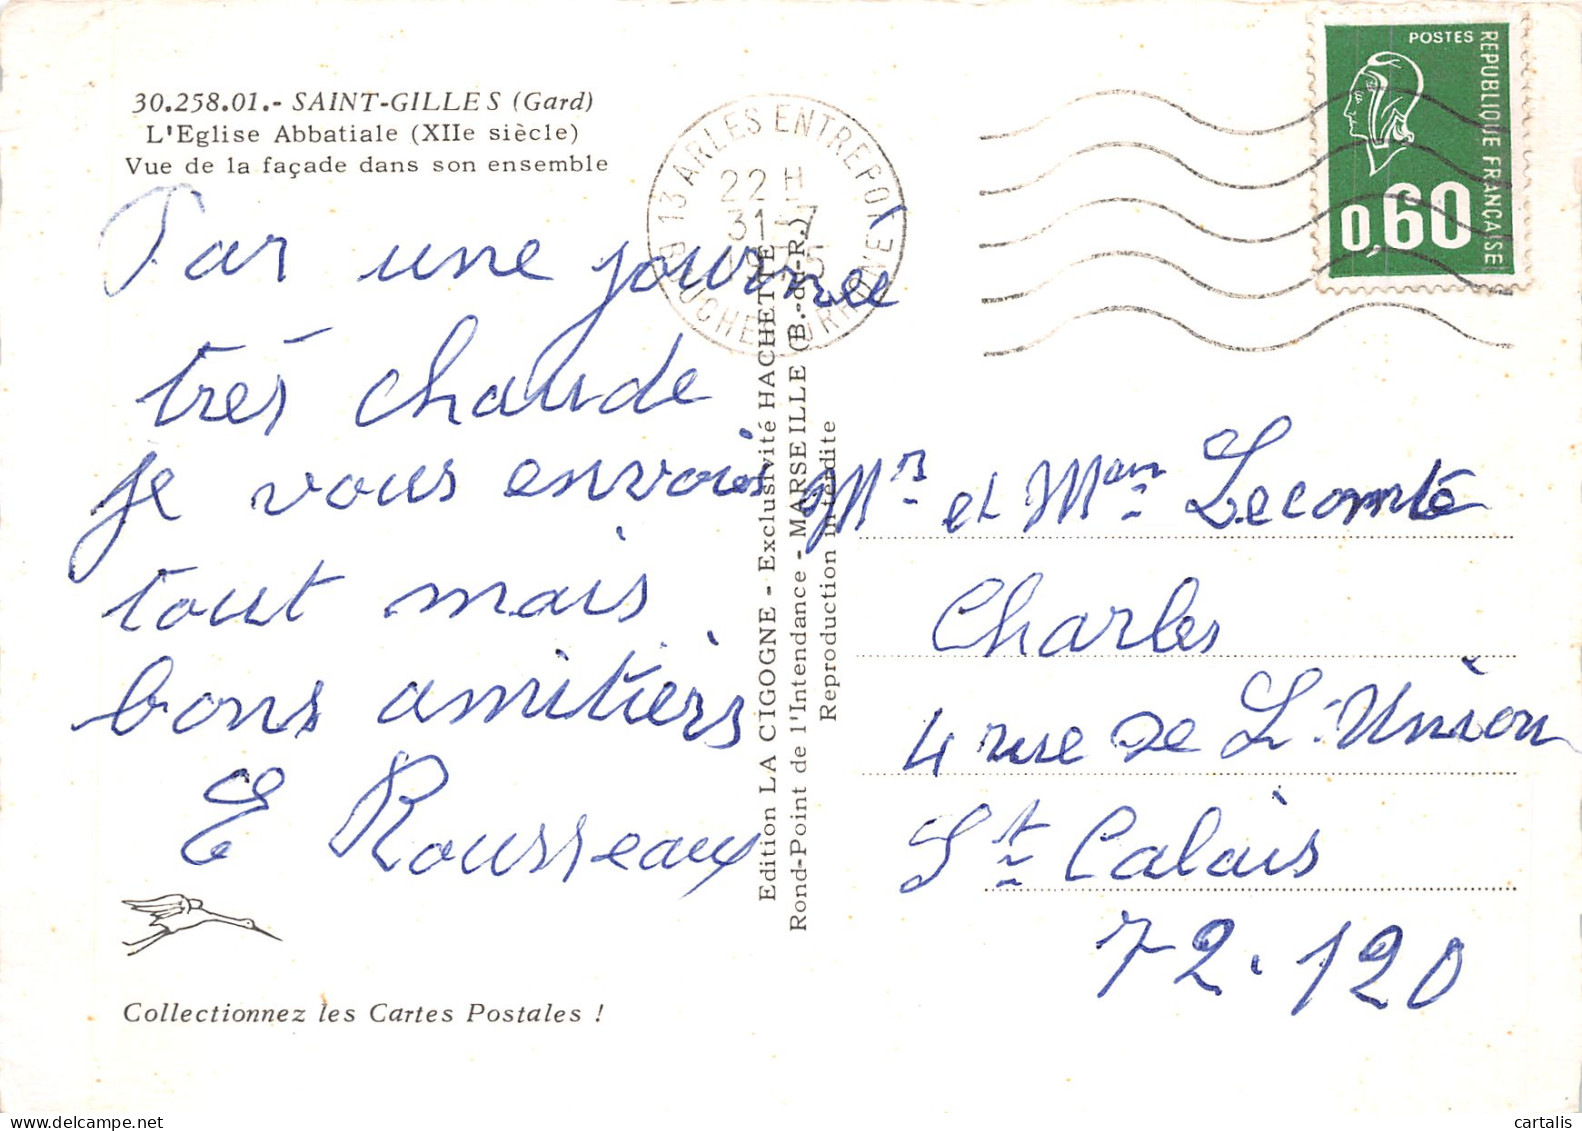 30.258.01.- SAINT-GILLES (Gard)
L'Eglise Abbatiale (XIIe siècle)
Vue de la façade dans son ensemble
Par une journée
très chaude
je vous envois
tout mais
bons amitiers
E Rousseaux
Collectionnez les Cartes Postales !
Edition LA CIGOGNE - Exclusivité HACHETTE
Rond-Point de l'Intendance - MARSEILLE (B.-du-R.)
Reproduction interdite
13 ARLES ENTREPOT
22 H
31-7
BOUCHES DU RHONE
POSTES
REPUBLIQUE FRANÇAISE
0,60
Mr et Mam Lecomte
Charles
4 rue de L'Union
St Calais
72.120
cartalis